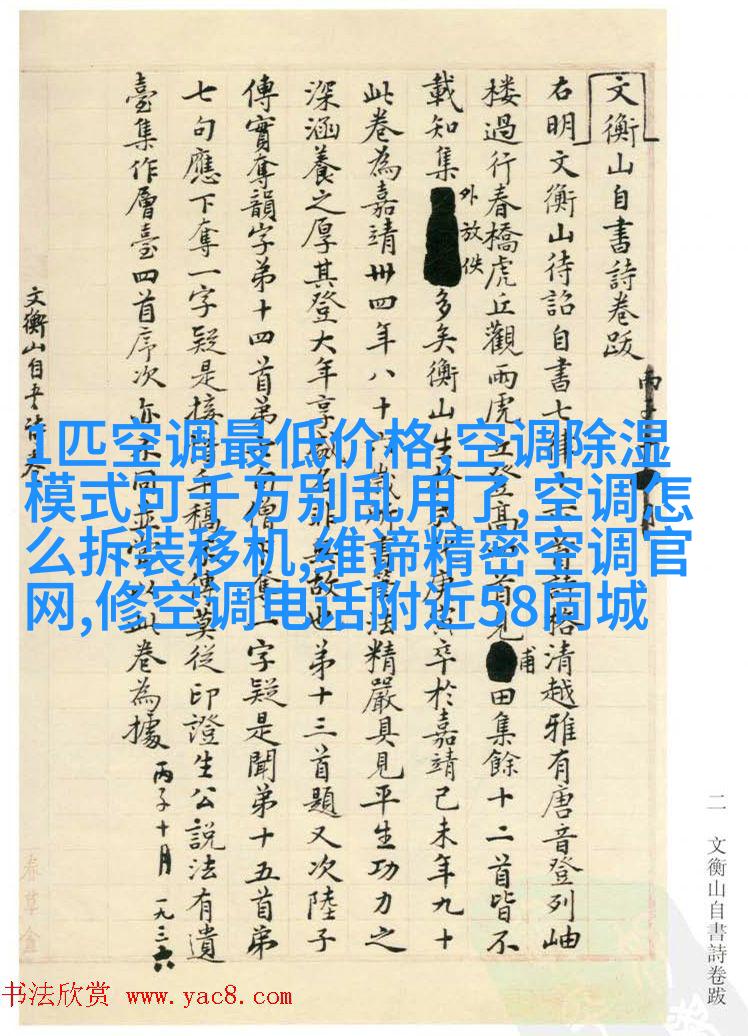 文衡山自書詩卷跋
右明文衡山待詔自書七律首詩格清越雅有唐音登列岫
楼過行春橋虎丘觀雨虎丘登高首見甫田集餘十二首皆不
載知集外放佚多矣衡山生於成庚寅卒於嘉靖己未年九十
此卷為嘉靖卅四年八十歲書法精嚴具見平生功力之
深涵養之厚其登大年享盛名非無故也弟十三首題又次陸子
傳實奪韻字弟十四首弟句僧下奪一字疑是聞弟十五首弟
七句應下奪一字疑是接手稿傳莫從印證生公說法有遺
臺集作層臺四首序次亦不同並當以此卷為據
丙子十月 一九三六
文衡山自書詩卷
1匹空调最低价格,空调除湿
模式可千万别乱用了,空调怎
么拆装移机,维谛精密空调官
网,修空调电话附近58同城
二 文衡山自書詩卷跋
书法欣赏 www.yac8.com